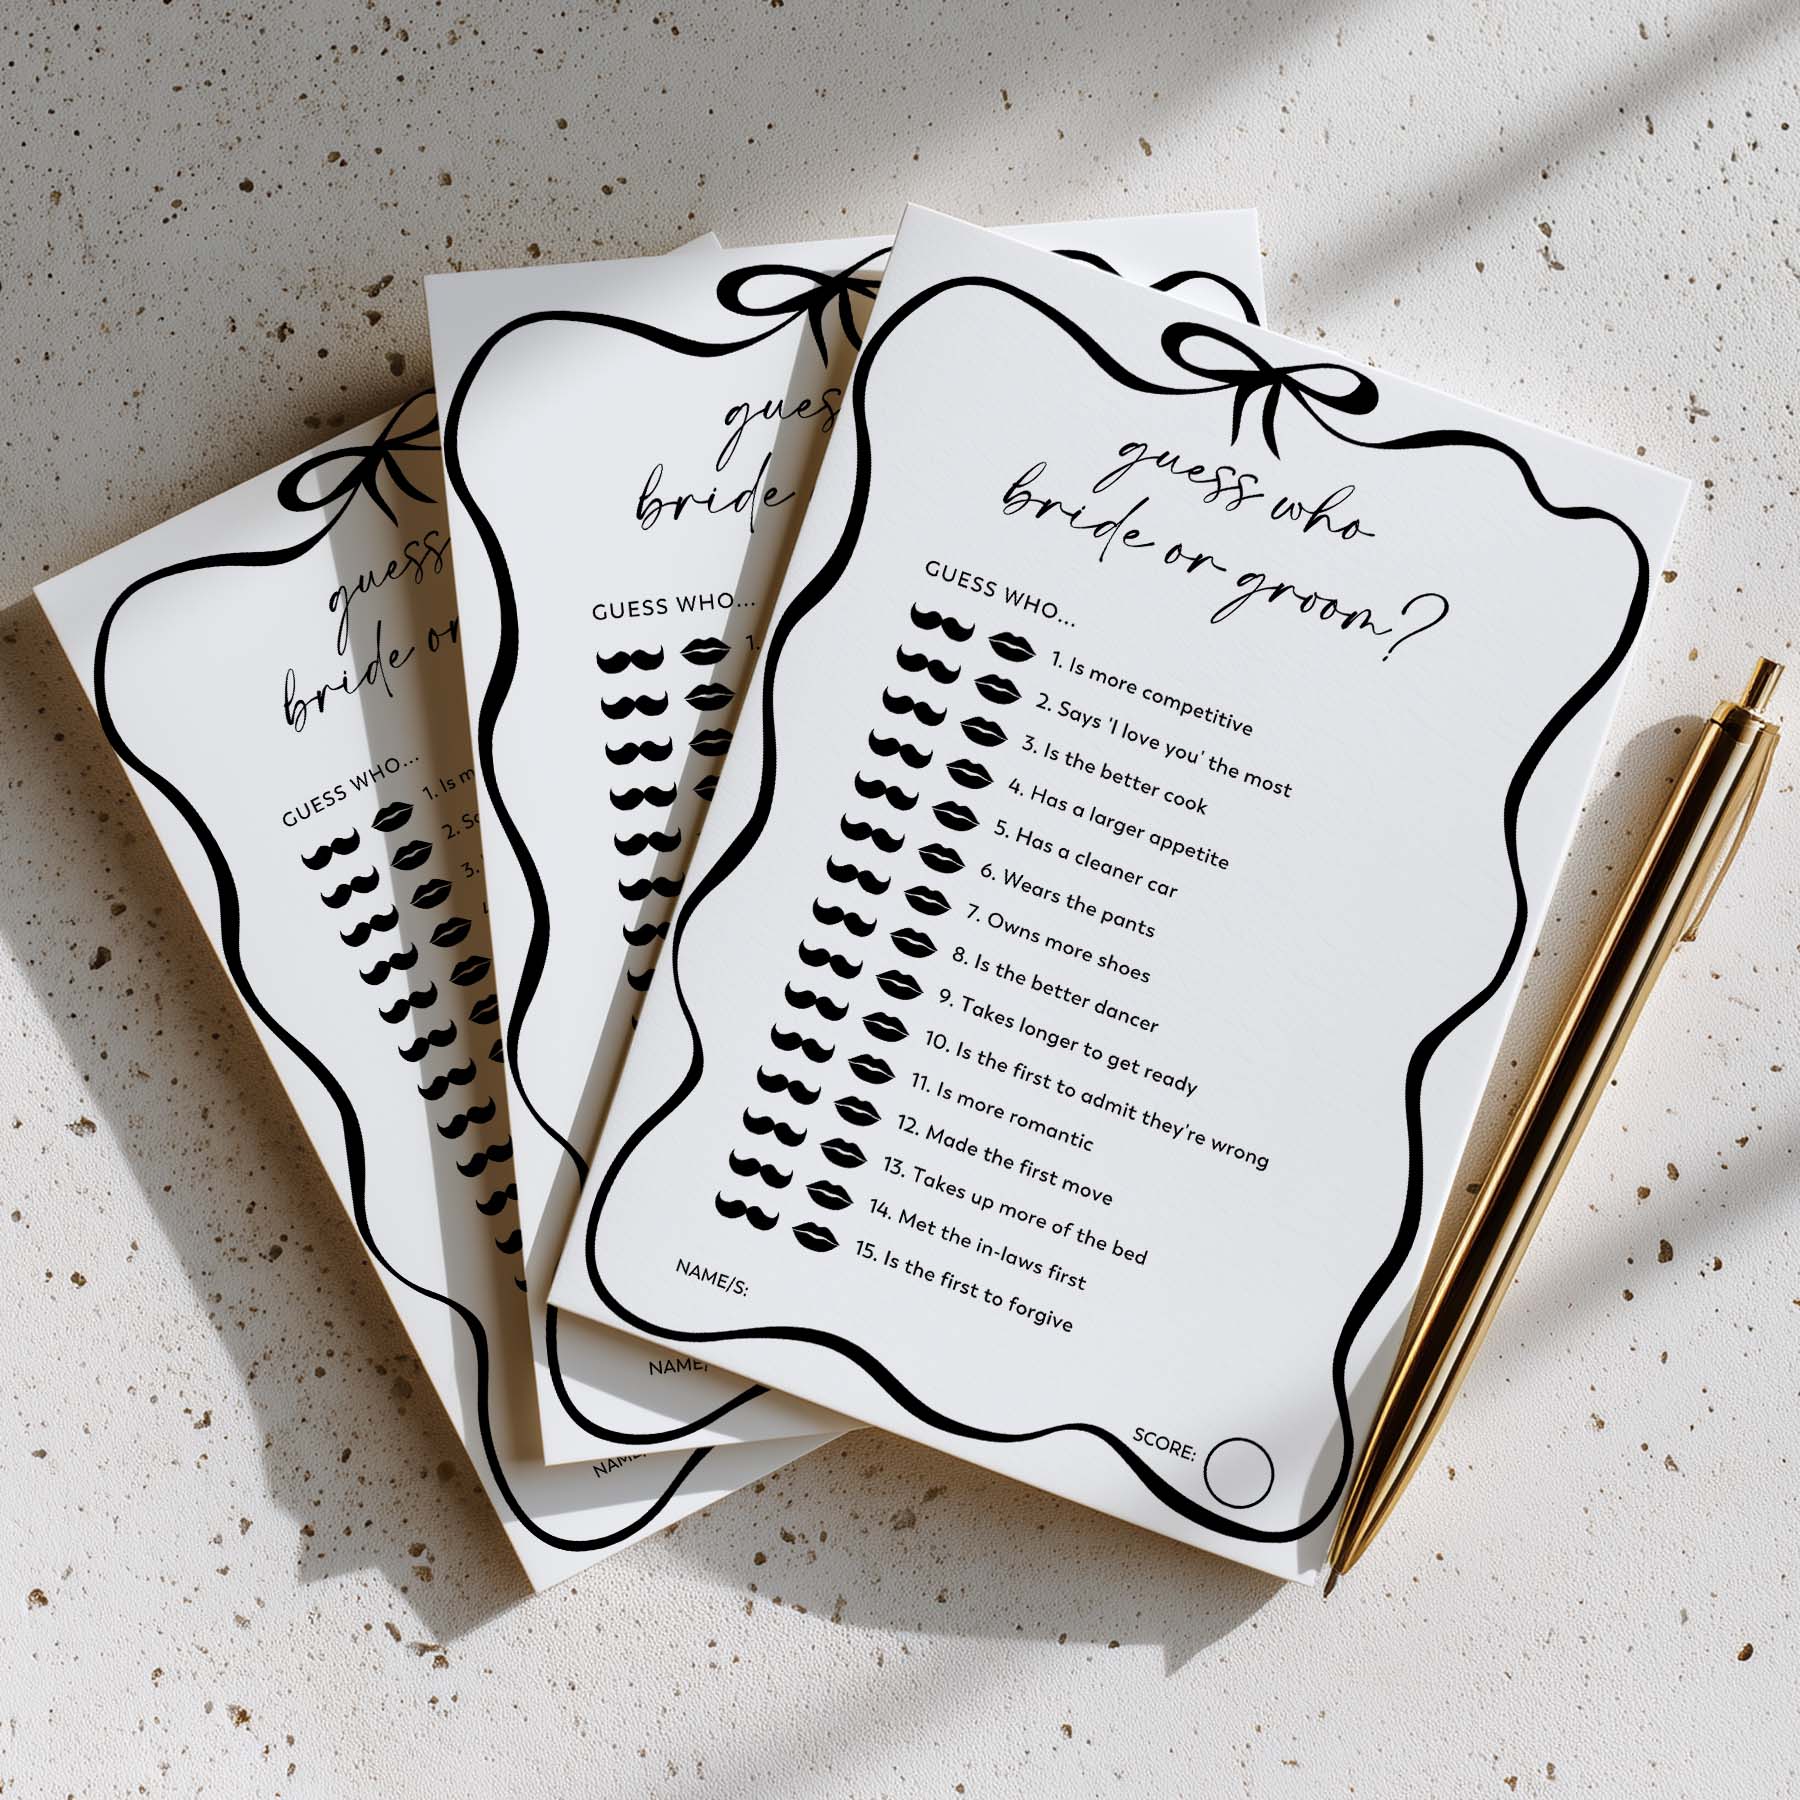 guess who
bride or groom?
GUESS WHO...
1. Is more competitive
2. Says 'I love you' the most
3. Is the better cook
4. Has a larger appetite
5. Has a cleaner car
6. Wears the pants
7. Owns more shoes
8. Is the better dancer
9. Takes longer to get ready
10. Is the first to admit they're wrong
11. Is more romantic
12. Made the first move
13. Takes up more of the bed
14. Met the in-laws first
15. Is the first to forgive
NAME/S:
SCORE:
gues
bride
GUESS WHO...
1.
NAME/
guess
bride or
GUESS WHO...
1. Is m
2. Sa
3.
NAME